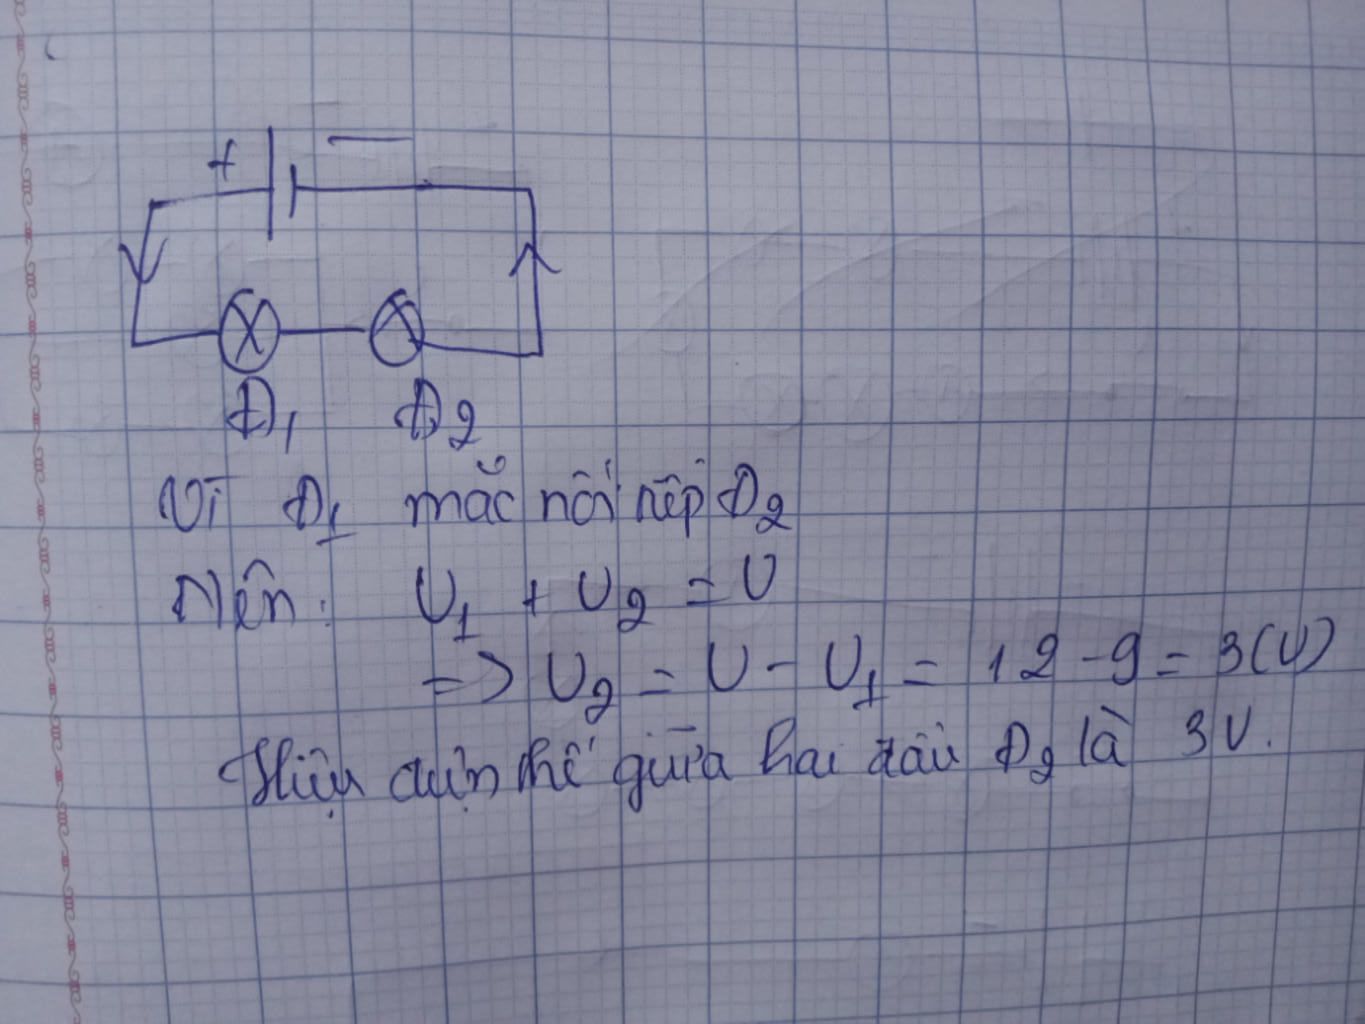 + −
Đ1 Đ2
Vì Đ1 mắc nối tiếp Đ2
Nên: U1 + U2 = U
=> U2 = U - U1 = 12 - 9 = 3(V)
Hiệu điện thế giữa hai đầu Đ2 là 3V.